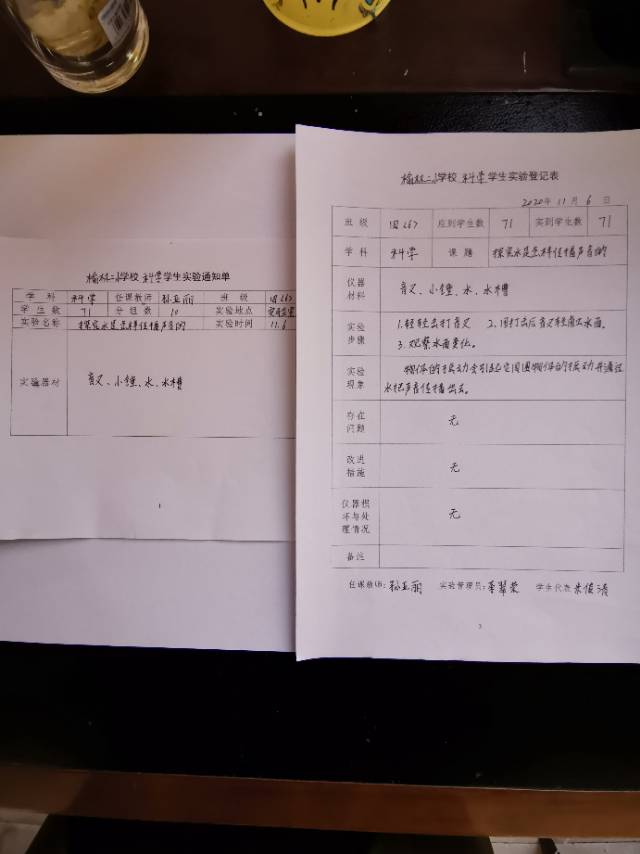 榆林二小学校 科学 学生实验通知单
学 科 科学 任课教师 孙亚丽 班 级 四267
学 生 数 71 分 组 数 10 实验地点
实验名称 探究水是怎样传播声音的 实验时间 11.6
实验器材 音叉、小锤、水、水槽
1
榆林二小学校 科学 学生实验登记表
2020年 11月 6日
班 级 四267 应到学生数 71 实到学生数 71
学 科 科学 课 题 探究水是怎样传播声音的
仪器材料 音叉、小锤、水、水槽
实验步骤 1.轻轻击打音叉 2.用打击后音叉轻触水面。
3.观察水面变化。
实验现象 物体的振动会引起它周围物体的振动并通过
水把声音传播出去。
存在问题 无
改进措施 无
仪器损坏与处理情况 无
备注
任课教师:孙亚丽 实验管理员: 学生代表 朱俊清